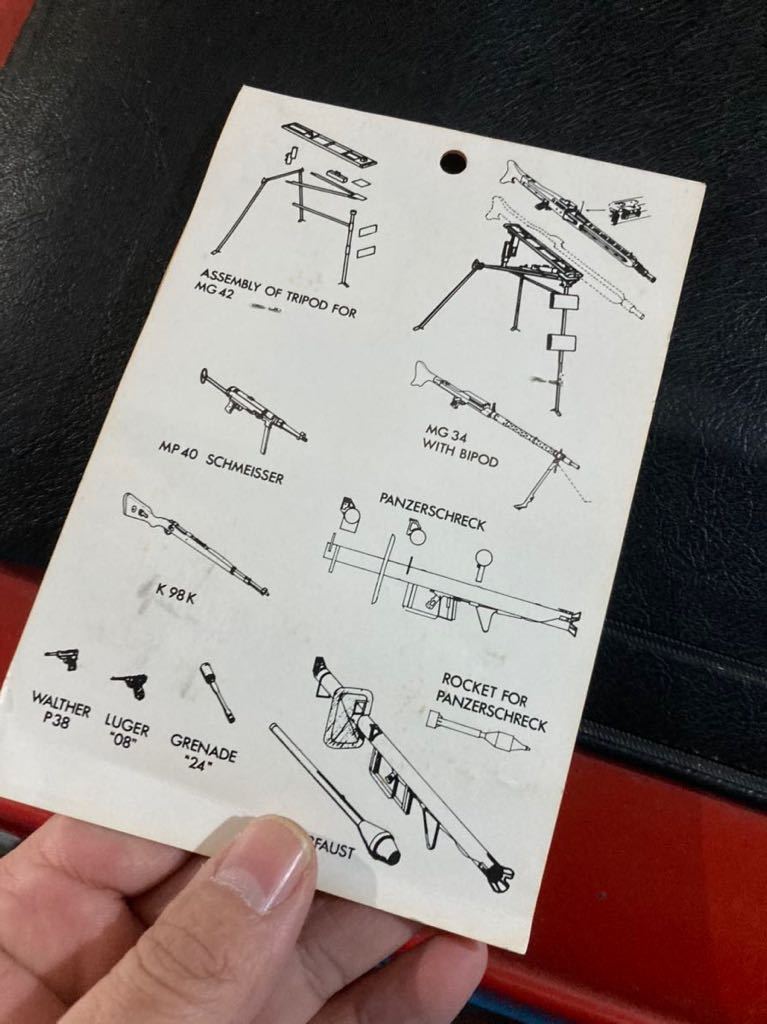 ASSEMBLY OF TRIPOD FOR
MG 42
MP 40 SCHMEISSER
MG 34
WITH BIPOD
PANZERSCHRECK
K 98 K
WALTHER
P38
LUGER
"08"
GRENADE
"24"
ROCKET FOR
PANZERSCHRECK